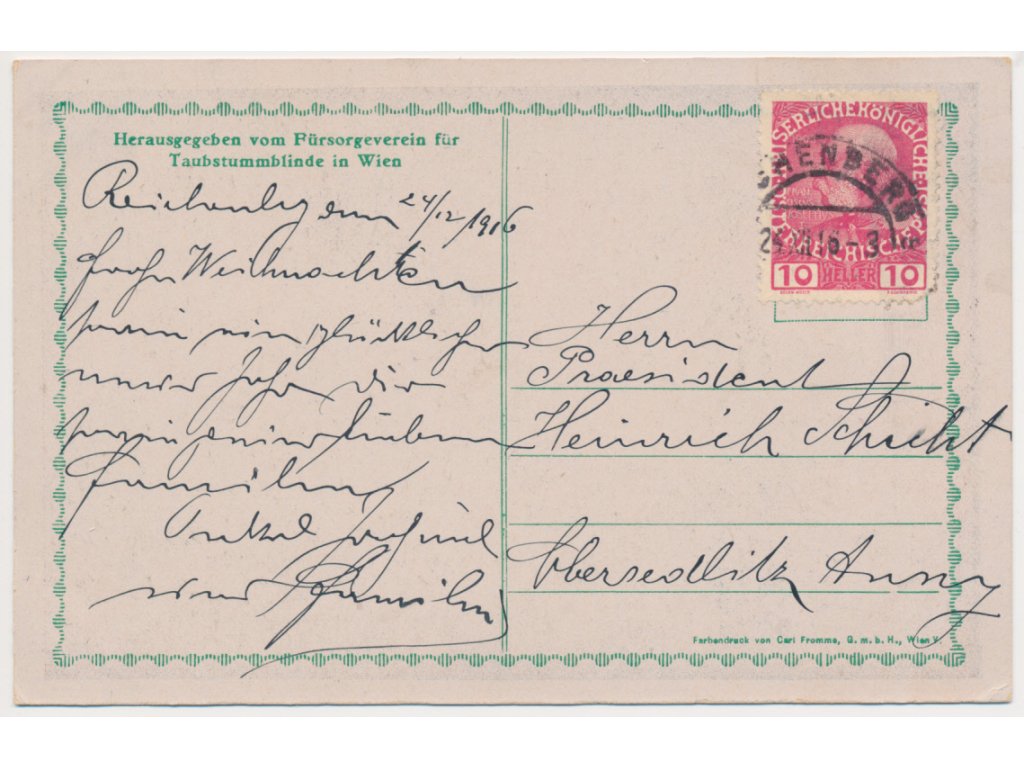 Herausgegeben vom Fürsorgeverein für
Taubstummblinde in Wien
Reichenberg am 24/12 1916
Frohe Weihnachten
sowie ein glückliches
neues Jahr Dir
sowie Deiner lieben
Familie
Onkel
und Familie
KAISERLICHE KÖNIGLICHE
ÖSTERREICHISCHE
10 HELLER 10
CHENBERG
24.XII.16-3
Herrn
Praesident
Heinrich Schicht
Obersedlitz Aussig
Farbendruck von Carl Fromme, G. m. b. H., Wien V.